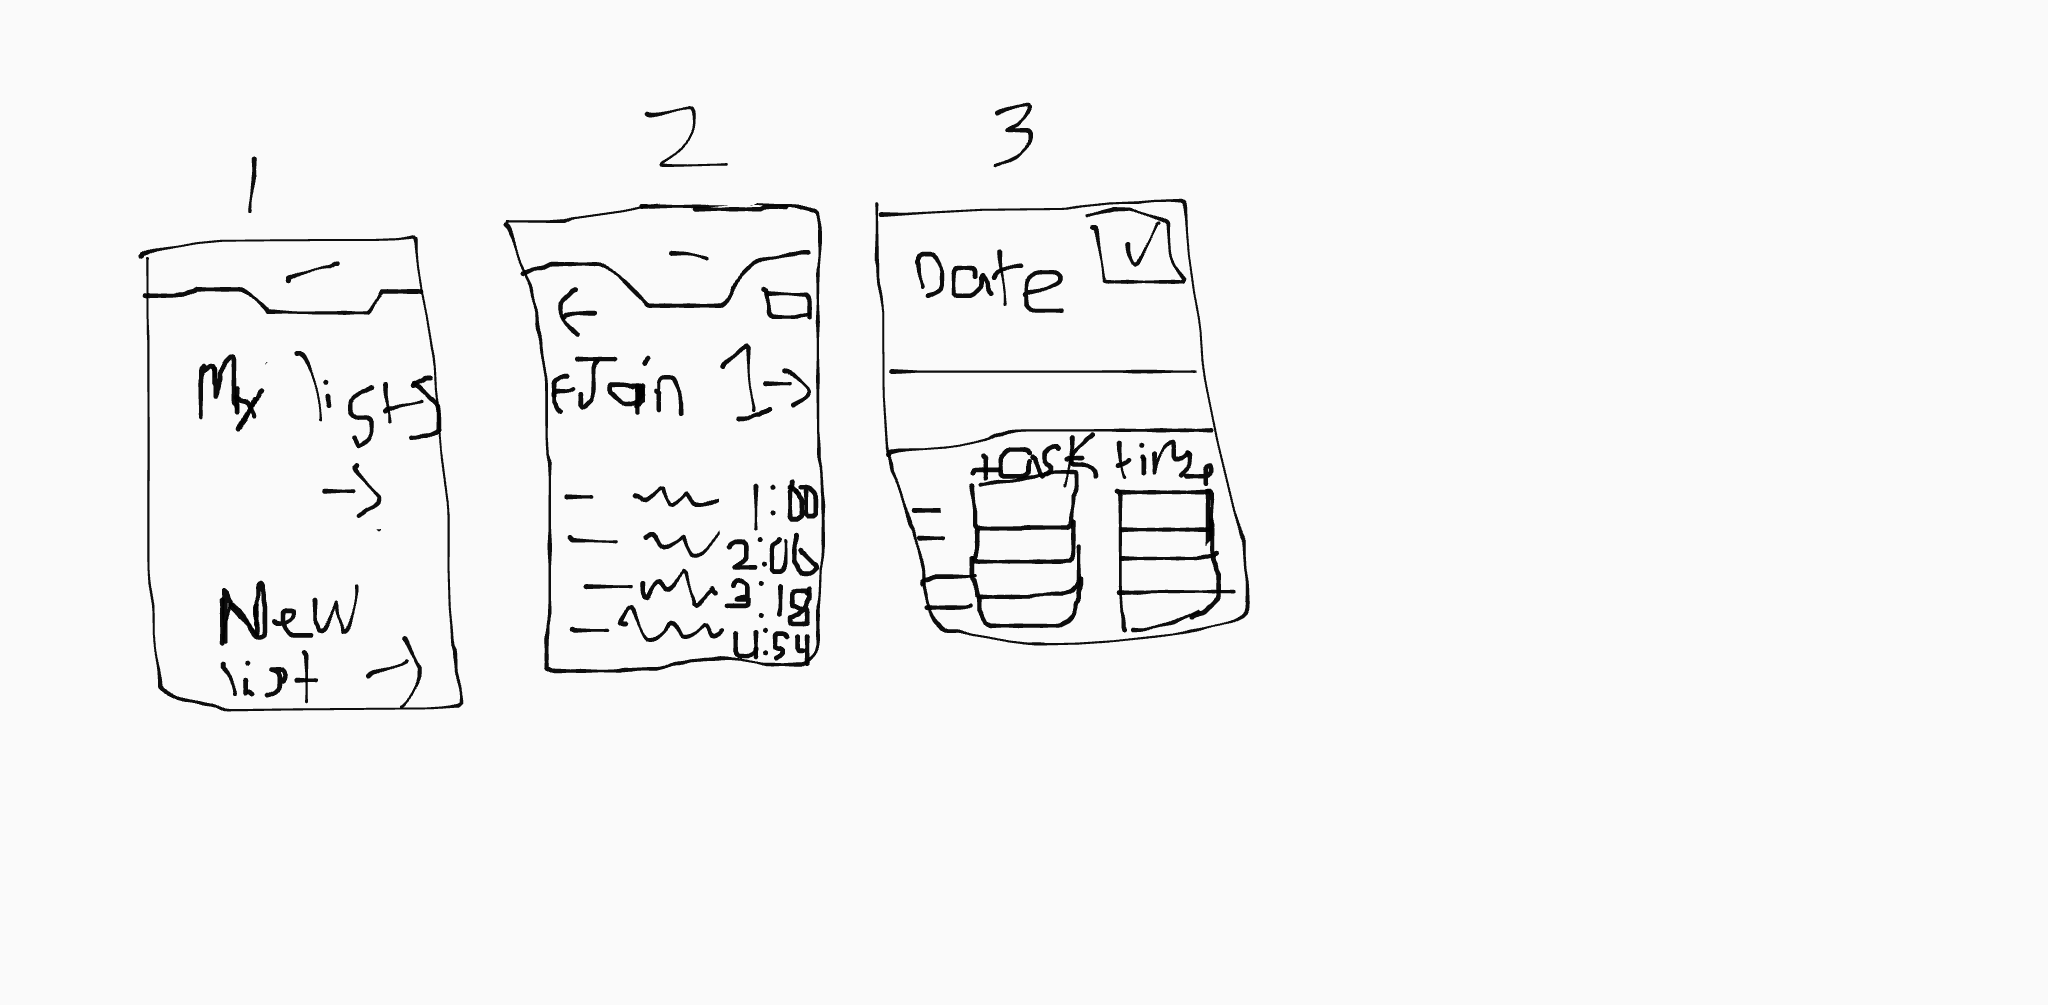 1
My lists
→
New
list →
2
←
← Jain 1 →
1:00
2:06
3:18
4:54
3
Date ✓
task time